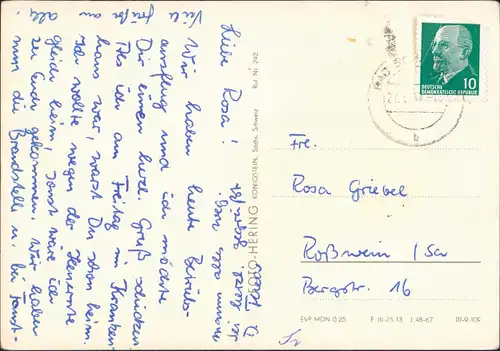 Liebe Rosa!
Wir haben heute Betriebs-
ausflug und ich möchte
Dir einen kurz. Gruß schicken
Als ich am Freitag im Kranken-
haus war, warst Du schon heim.
Ich wollte wegen der
gleich heim, sonst wäre ich
zu Euch gekommen. Wir haben
nun die Brandstelle u. bei
Viele Grüße an
all.
FOTO-HERING KÖNIGSTEIN, Sächs. Schweiz Ruf Nr. 242
DEUTSCHE
DEMOKRATISCHE REPUBLIK
10
b
Fr.
Rosa Griebel
Roßwein / Sa
Bergstr. 16
EVP MDN 0.25 F III-25-13 J 48-67 III-9-109